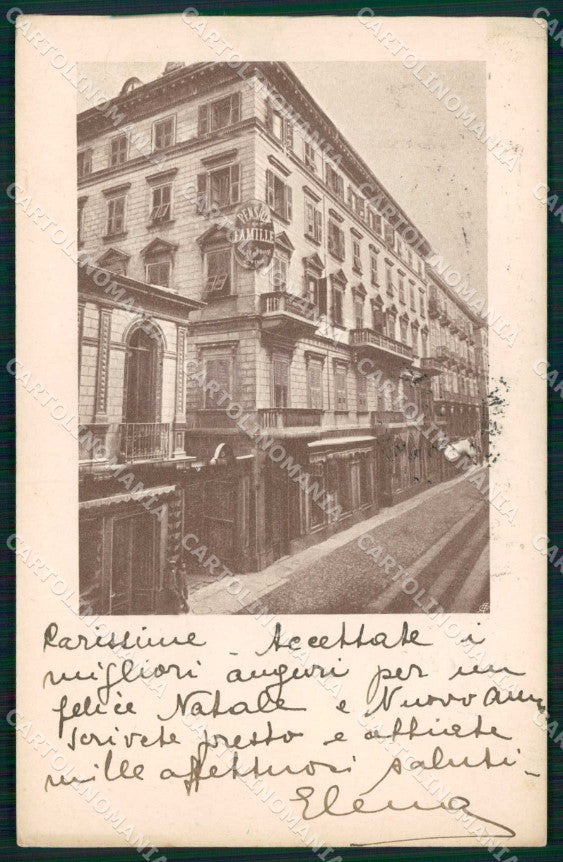 PENSION
FAMILLE
Carissime Accettate i
migliori auguri per un
felice Natale e Nuovo Anno
scrivete presto e
mille affettuosi saluti -
Elena
CARTOLINOMANIA